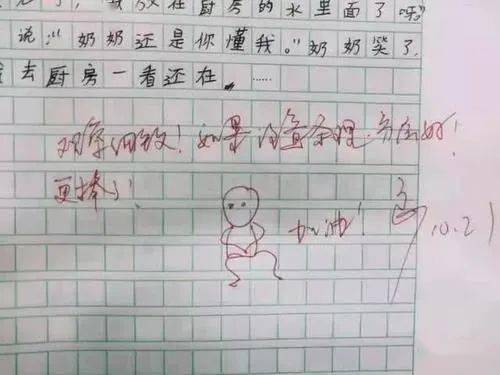 放在厨房的水里面了呀"
说:"奶奶还是你懂我。"奶奶笑了
去厨房一看还在。……
观察细致!如果内容条理·书写好!
更棒了!
加油!
10.21